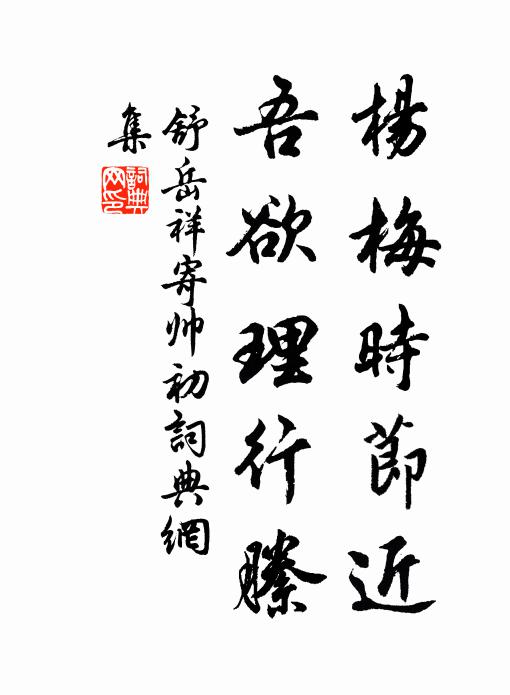 楊梅時節近
吾欲理行縢
舒岳祥寄帅初詞典網
集
詞典网印